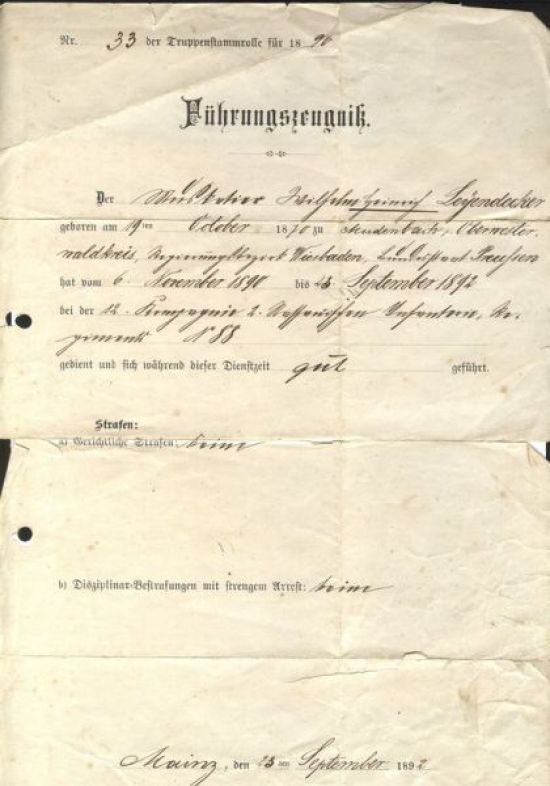 Nr. 33 der Truppenstammrolle für 1890
Führungszeugniß.
Der Musketier Wilhelm Heinrich Leyendecker
geboren am 19ten October 1870 zu Mudenbach, Oberwester-
waldkreis, Regierungsbezirk Wiesbaden, Bundesstaat Preussen
hat vom 6. November 1890 bis 23 September 1892
bei der 12. Kompagnie 2. Nassauischen Infanterie-Re-
giments N 88
gedient und sich während dieser Dienstzeit gut geführt.
Strafen:
a) Gerichtliche Strafen: keine
b) Disziplinar-Bestrafungen mit strengem Arrest: keine
Mainz, den 23ten September 1892